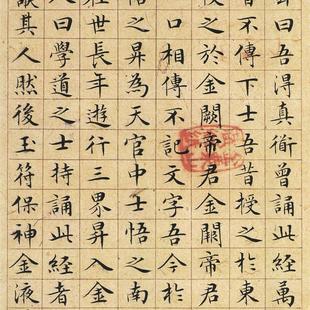 曰吾得真衜曾誦此經萬
不傳下士吾昔授之於東
之於金闕帝君金闕帝君
口相傳不記文字吾今於
悟之昇為天官中士悟之南
在世長年遊行三界昇入金
人曰學道之士持誦此經者
其人然後玉符保神金液